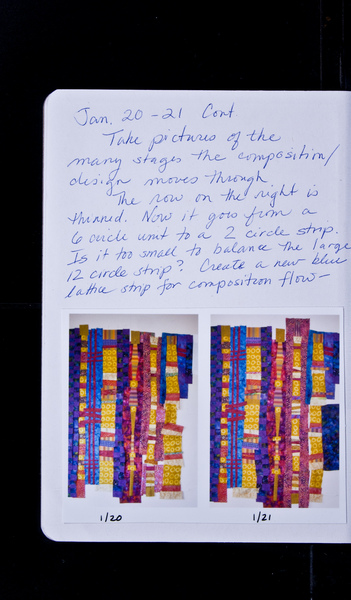 Jan. 20-21 Cont
Take pictures of the
many stages the composition/
design moves through
The row on the right is
thinned. Now it goes from a
6 circle unit to a 2 circle strip.
Is it too small to balance the large
12 circle strip? Create a new blue
lattice strip for composition flow-
1/20
1/21